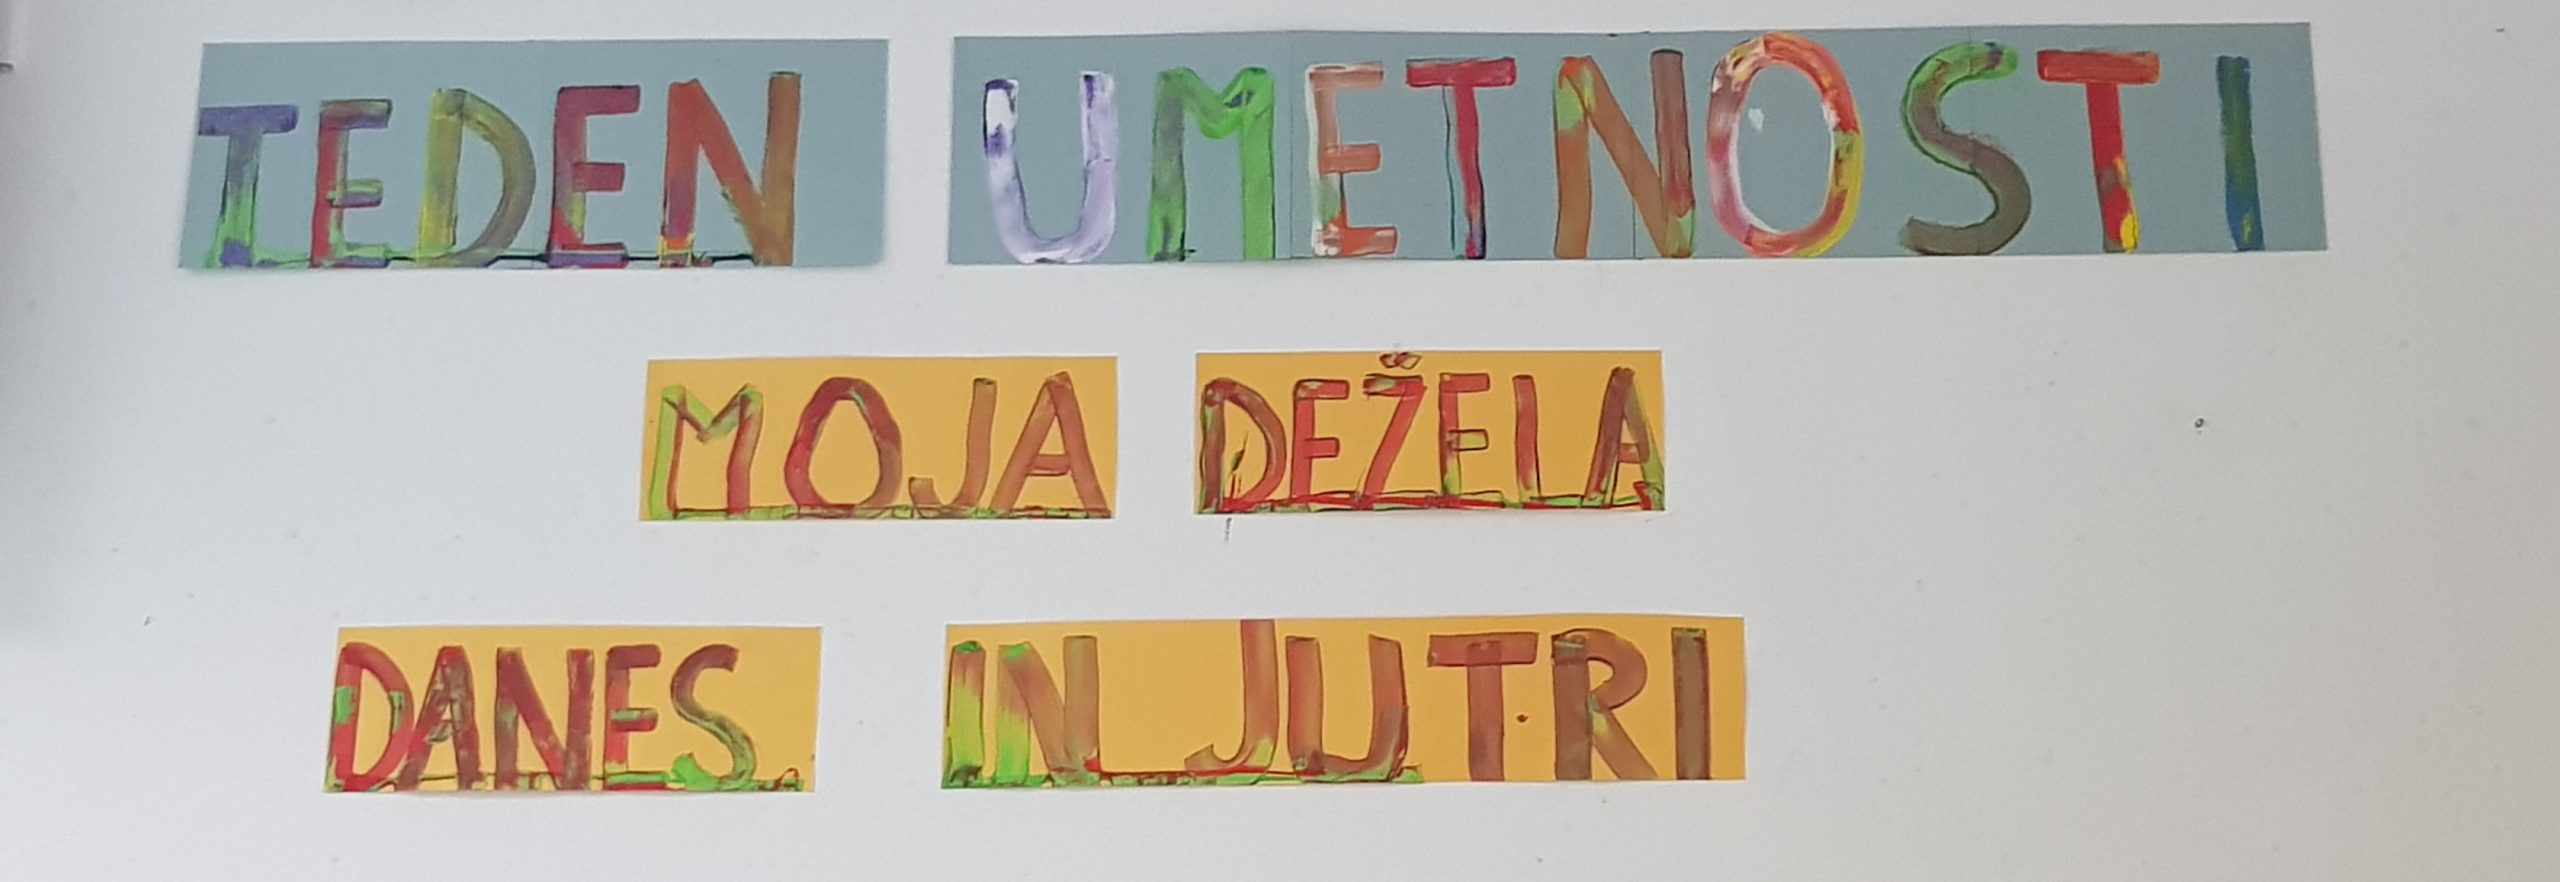 TEDEN UMETNOSTI
MOJA DEŽELA
DANES IN JUTRI